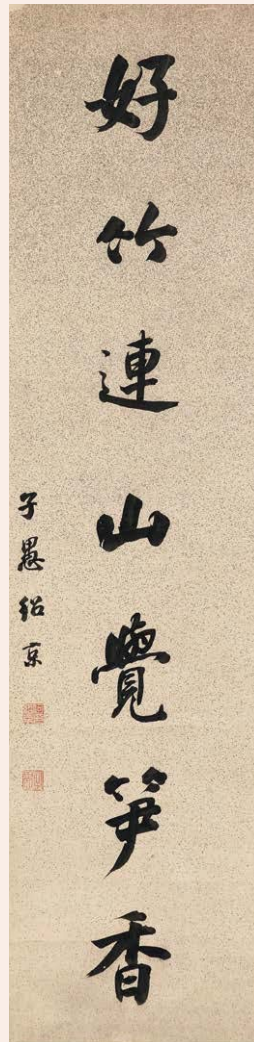 好竹連山覺笋香
子愚紹京